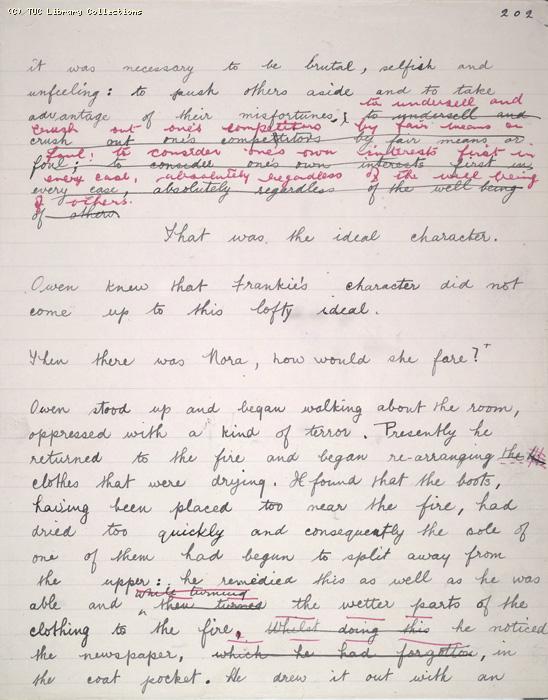 (C) TUC Library Collections
202
it was necessary to be brutal, selfish and
unfeeling: to push others aside and to take
advantage of their misfortunes; to undersell and
to undersell and
crush out one's competitors by fair means or
crush out one's competitors by fair means or
foul; to consider one's own interests first in
foul; to consider one's own interests first in
every case, absolutely regardless of the well being
every case, absolutely regardless of the well being
of others.
of others
That was the ideal character.
Owen knew that Frankie's character did not
come up to this lofty ideal.
Then there was Nora, how would she fare?
Owen stood up and began walking about the room,
oppressed with a kind of terror. Presently he
returned to the fire and began re-arranging the
clothes that were drying. He found that the boots,
having been placed too near the fire, had
dried too quickly and consequently the sole of
one of them had begun to split away from
the upper: he remedied this as well as he was
while turning
able and then turned the wetter parts of the
clothing to the fire, Whilst doing this he noticed
the newspaper, which he had forgotten, in
the coat pocket. He drew it out with an